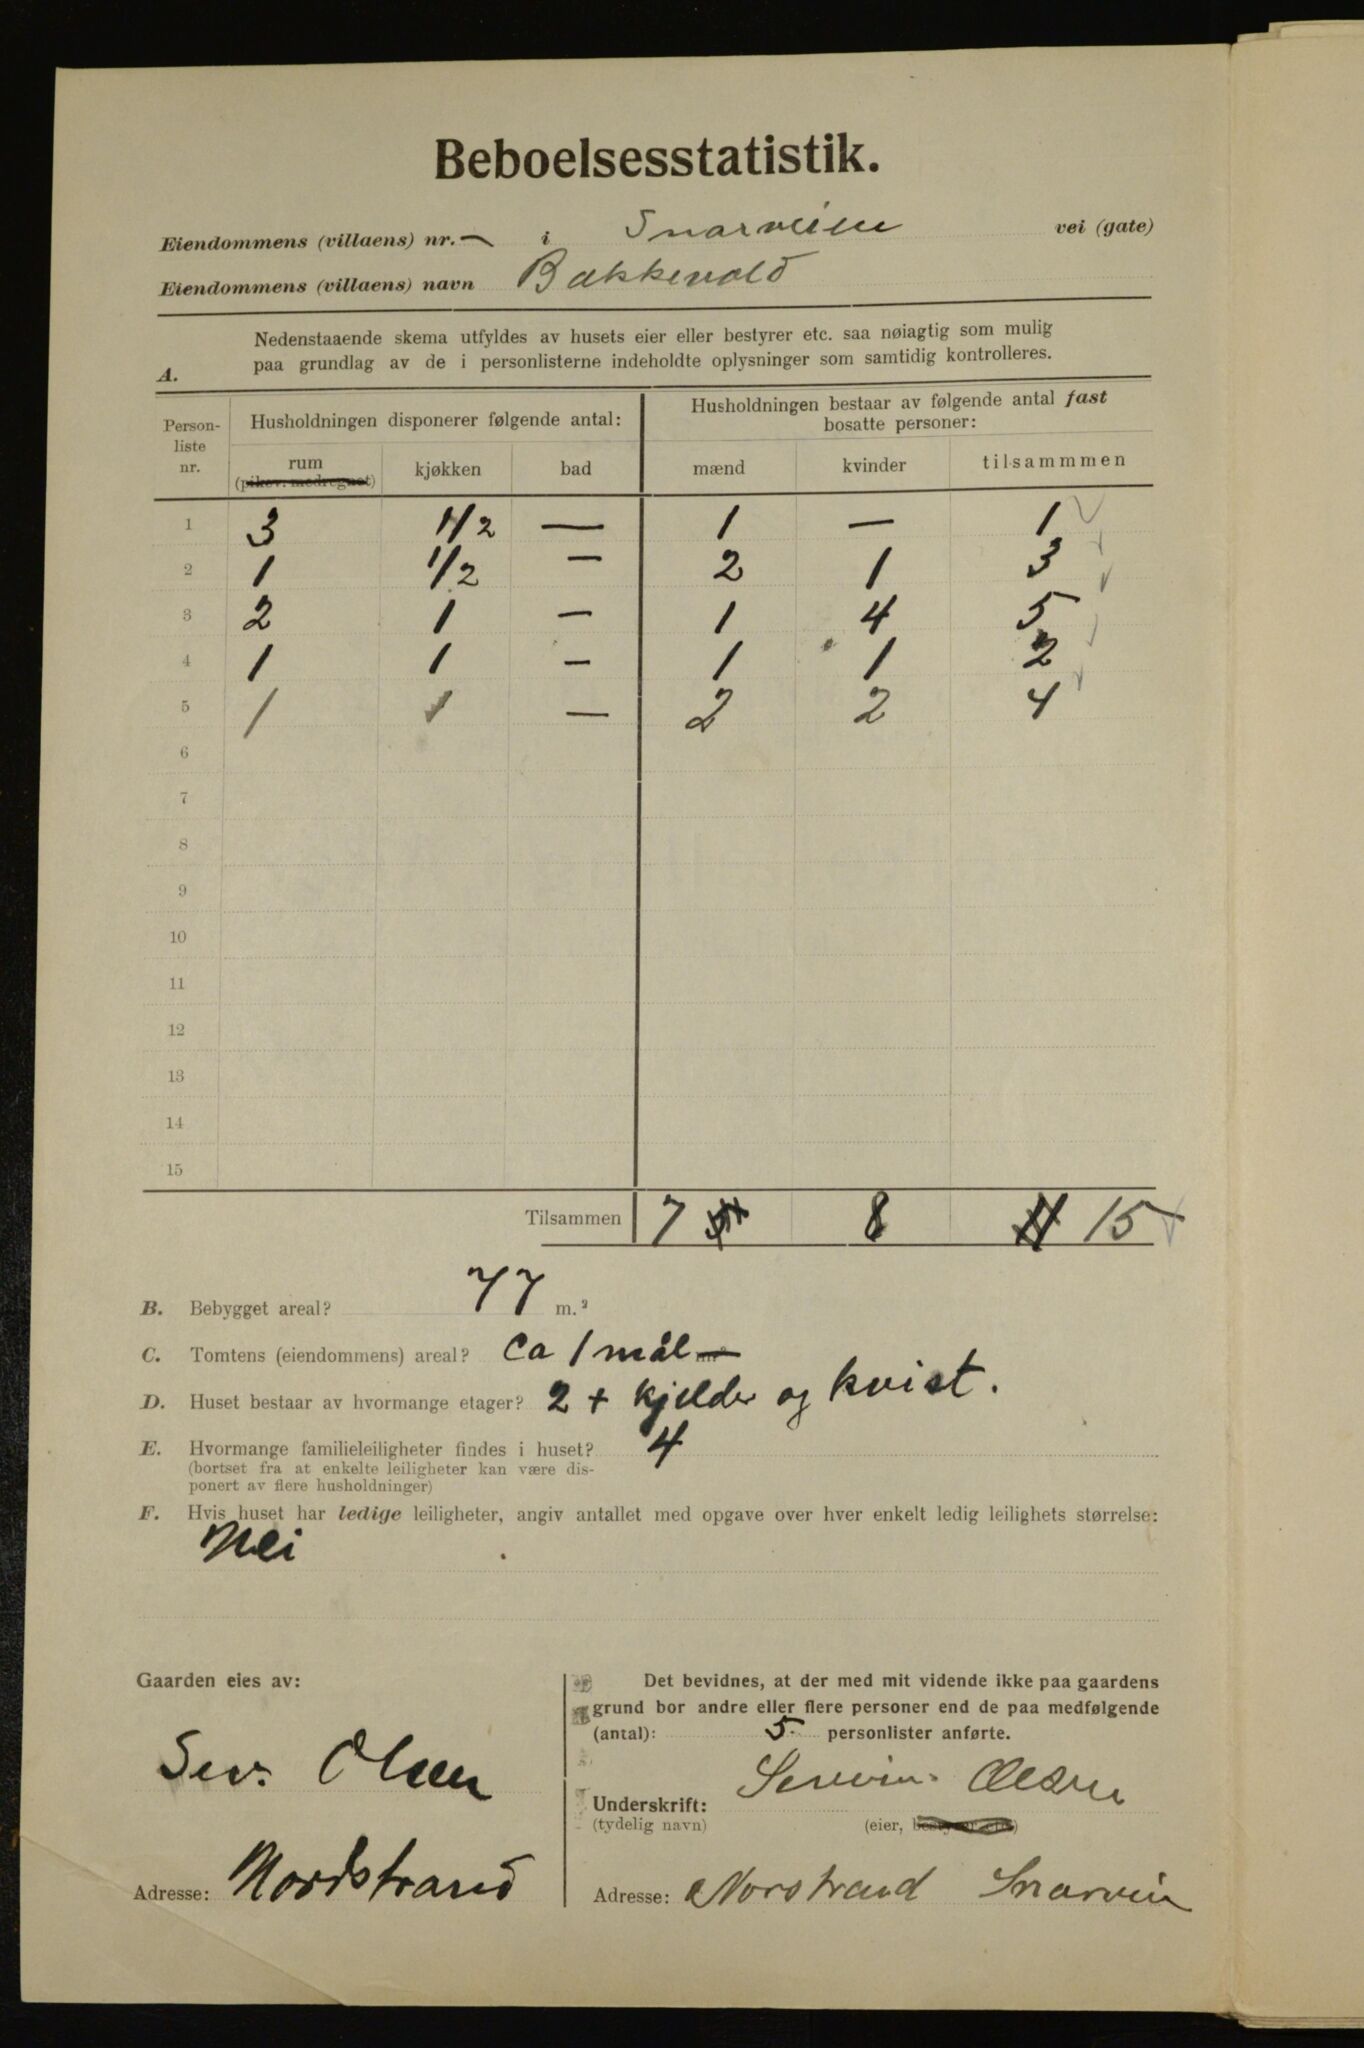 Beboelsesstatistik.
Eiendommens (villaens) nr. — i Snarveien vei (gate)
Eiendommens (villaens) navn Bakkevold
Nedenstaaende skema utfyldes av husets eier eller bestyrer etc. saa nøiagtig som mulig
A. paa grundlag av de i personlisterne indeholdte oplysninger som samtidig kontrolleres.
Person-liste nr. Husholdningen disponerer følgende antal: Husholdningen bestaar av følgende antal fast bosatte personer:
rum (pikev. medregnet) kjøkken bad mænd kvinder tilsammmen
1 3 1/2 — 1 — 1
2 1 1/2 — 2 1 3
3 2 1 — 1 4 5
4 1 1 — 1 1 2
5 1 1 — 2 2 4
6
7
8
9
10
11
12
13
14
15
Tilsammen 7 8 11 15
B. Bebygget areal? 77 m.²
C. Tomtens (eiendommens) areal? Ca 1 mål
D. Huset bestaar av hvormange etager? 2 + kjelder og kvist.
E. Hvormange familieleiligheter findes i huset? 4
(bortset fra at enkelte leiligheter kan være dis-
ponert av flere husholdninger)
F. Hvis huset har ledige leiligheter, angiv antallet med opgave over hver enkelt ledig leilighets størrelse:
Nei
Gaarden eies av:
Sev. Olsen
Adresse: Nordstrand
Det bevidnes, at der med mit vidende ikke paa gaardens
grund bor andre eller flere personer end de paa medfølgende
(antal): 5 personlister anførte.
Severin Olsen
Underskrift:
(tydelig navn) (eier, bestyrer etc.)
Adresse: Norstrand Snarvein